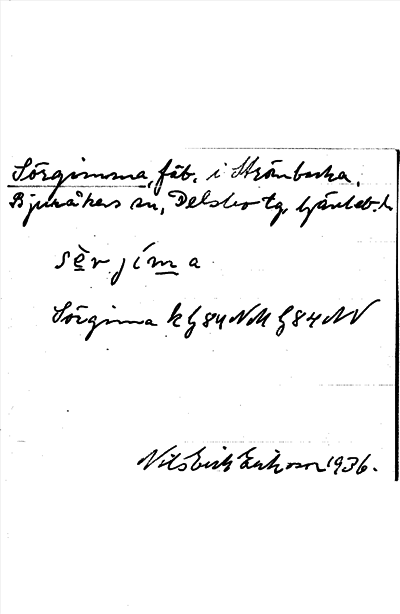 Sörgimma, fäb. i Strömbacka,
Bjuråkers sn, Delsbo tg, Gävleb. l.
sèr jíma
Sörgimma k G84NM G84NV
Nils Erik Eriksson 1936.